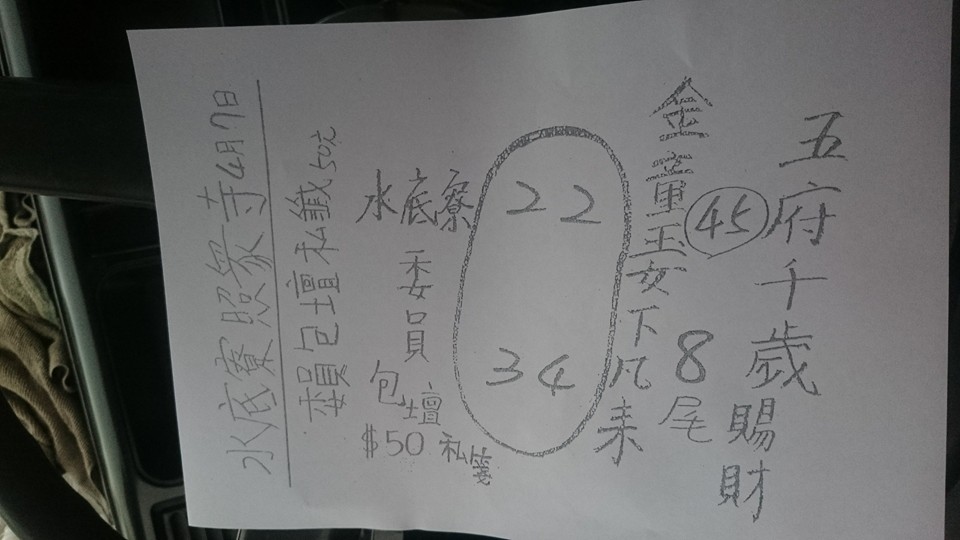 五府千歲賜財
金童玉女下凡来
45
8尾
22
34
水底寮
委員
包壇
$50 私箋
賴包壇私籤50元
水底寮照象寺4月7日